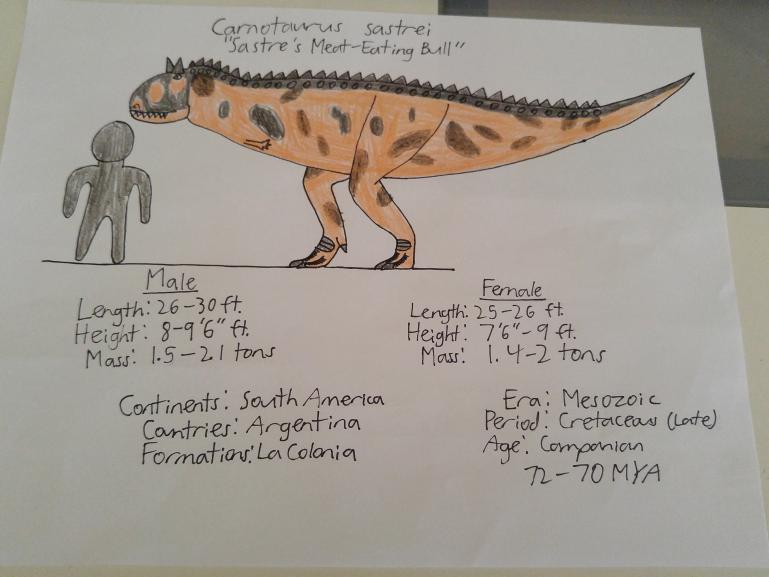 Carnotaurus sastrei
"Sastre's Meat-Eating Bull"
Male
Length: 26-30 ft.
Height: 8-9'6" ft.
Mass: 1.5-2.1 tons
Female
Length: 25-26 ft.
Height: 7'6"-9 ft.
Mass: 1.4-2 tons
Continents: South America
Countries: Argentina
Formations: La Colonia
Era: Mesozoic
Period: Cretaceous (Late)
Age: Campanian
72-70 MYA